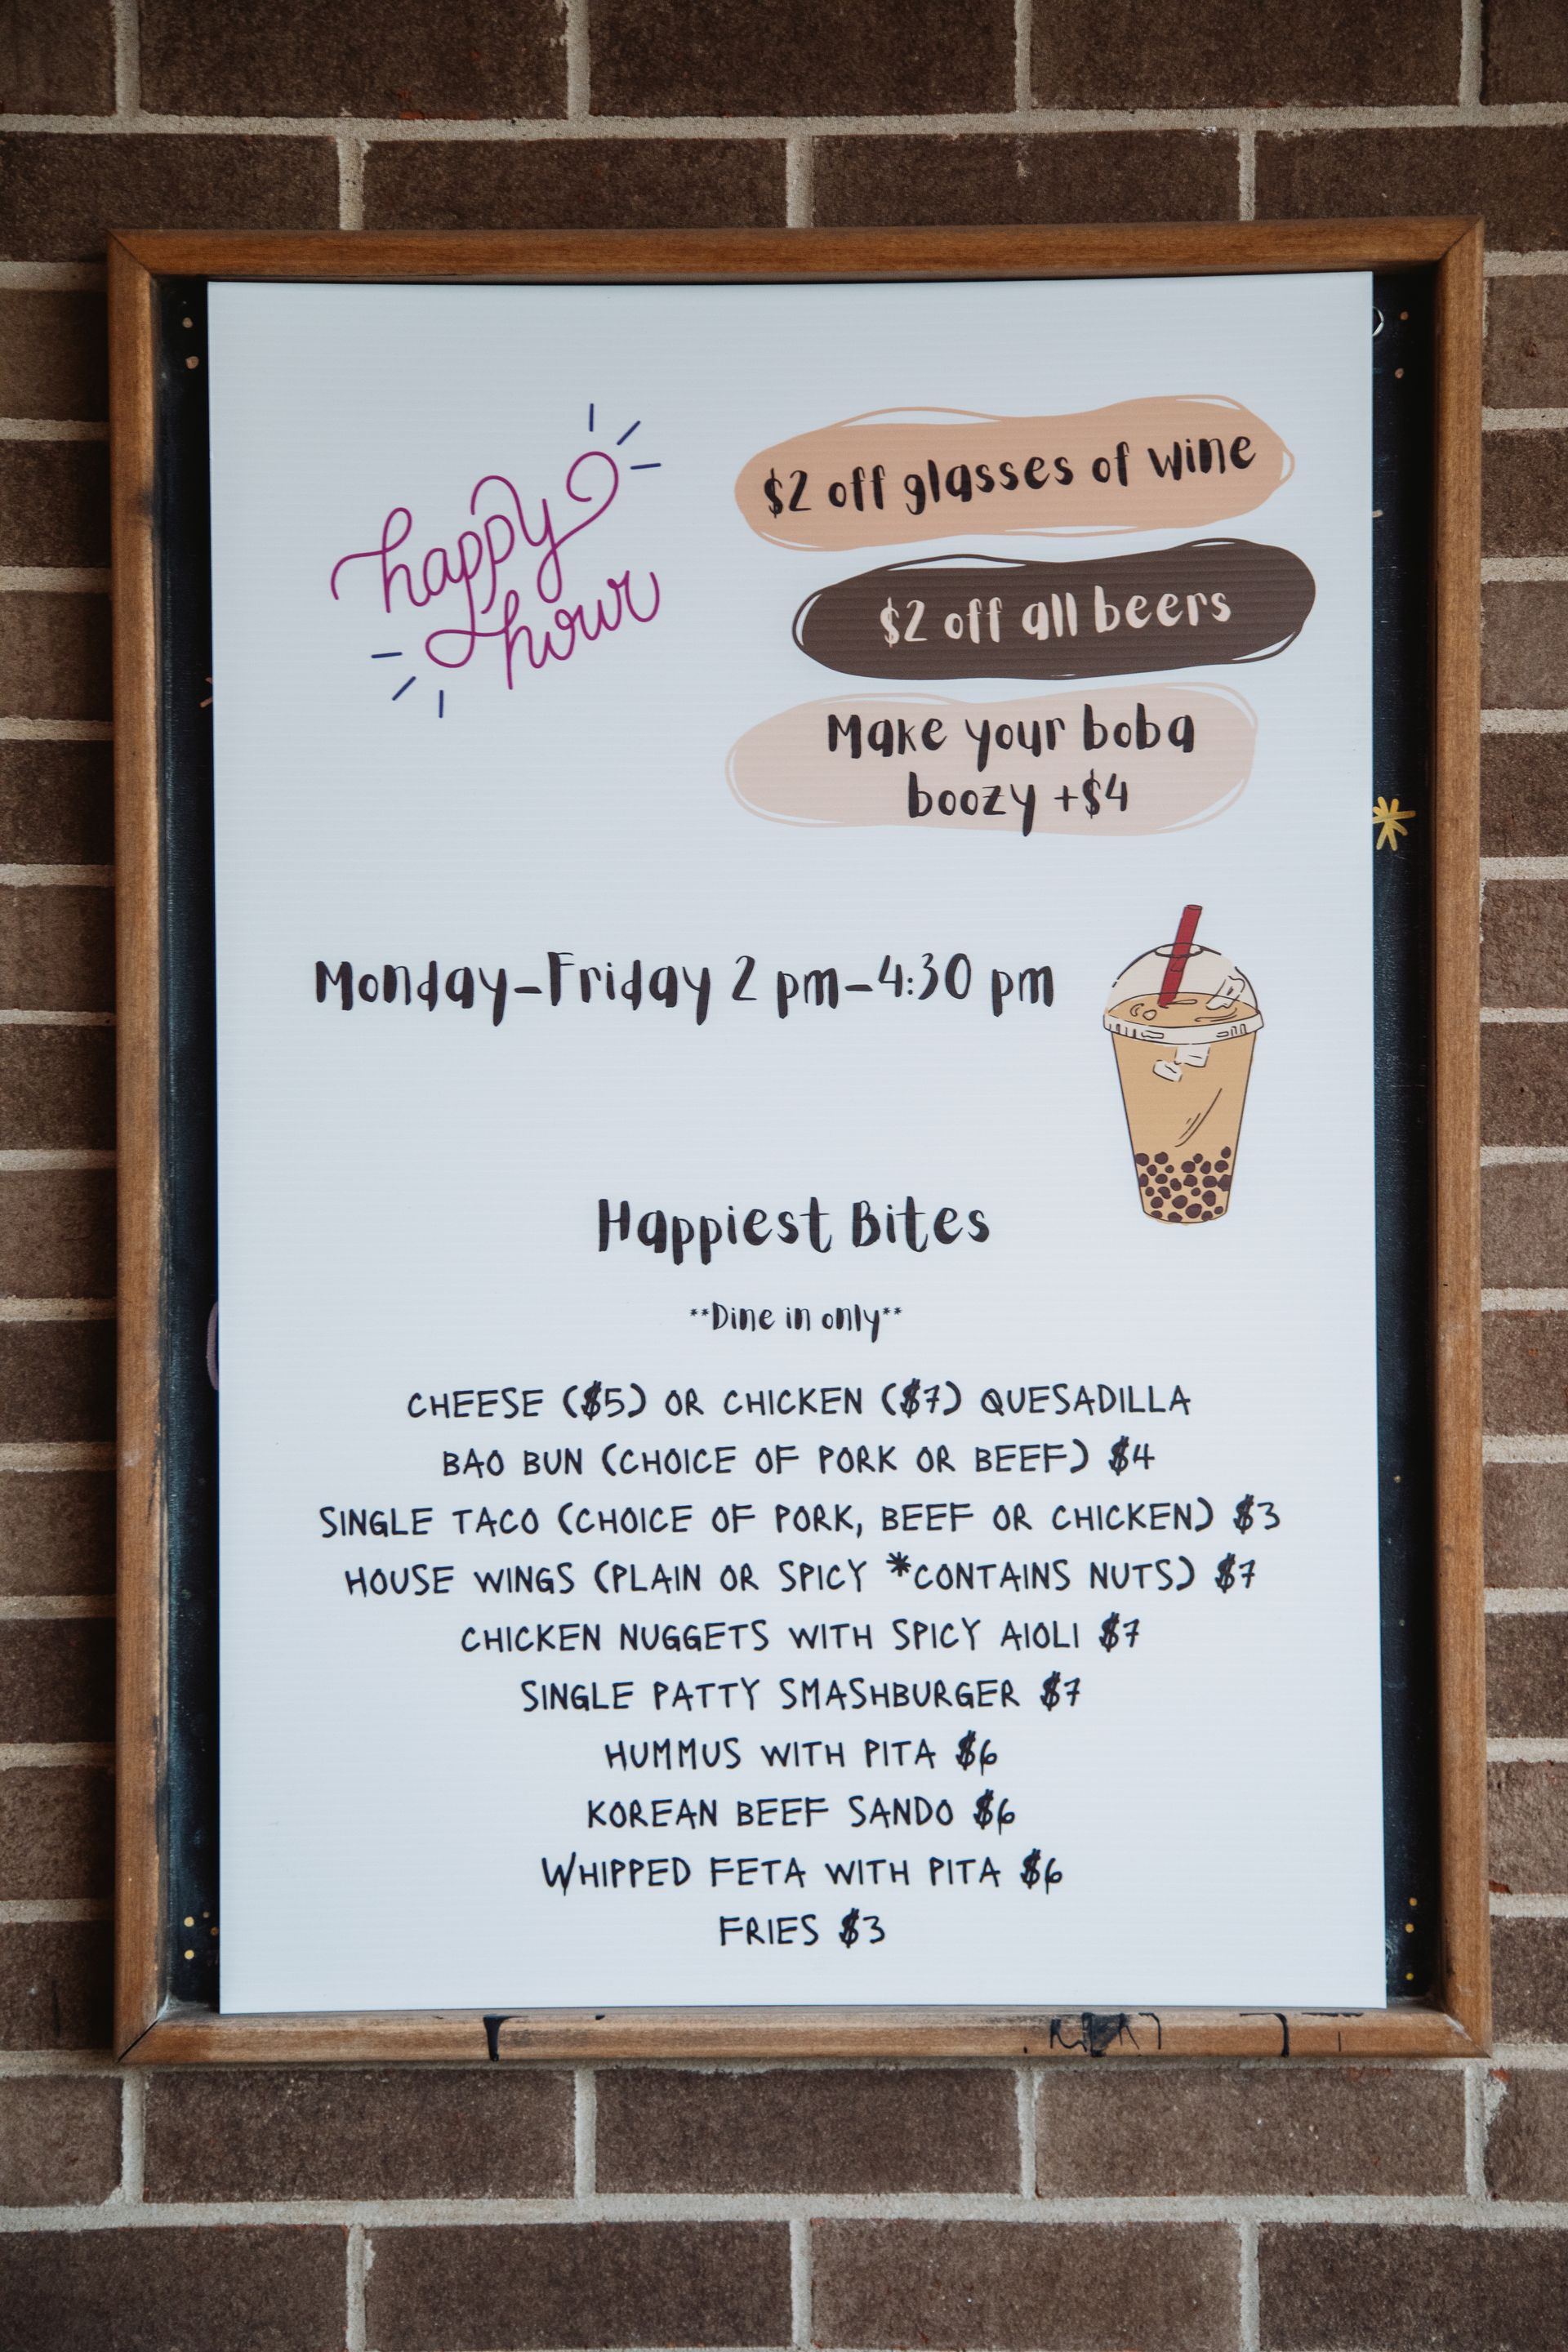 happy
hour
$2 off glasses of wine
$2 off all beers
Make your boba
boozy +$4
Monday-Friday 2 pm-4:30 pm
Happiest Bites
**Dine in only**
CHEESE ($5) OR CHICKEN ($7) QUESADILLA
BAO BUN (CHOICE OF PORK OR BEEF) $4
SINGLE TACO (CHOICE OF PORK, BEEF OR CHICKEN) $3
HOUSE WINGS (PLAIN OR SPICY *CONTAINS NUTS) $7
CHICKEN NUGGETS WITH SPICY AIOLI $7
SINGLE PATTY SMASHBURGER $7
HUMMUS WITH PITA $6
KOREAN BEEF SANDO $6
WHIPPED FETA WITH PITA $6
FRIES $3